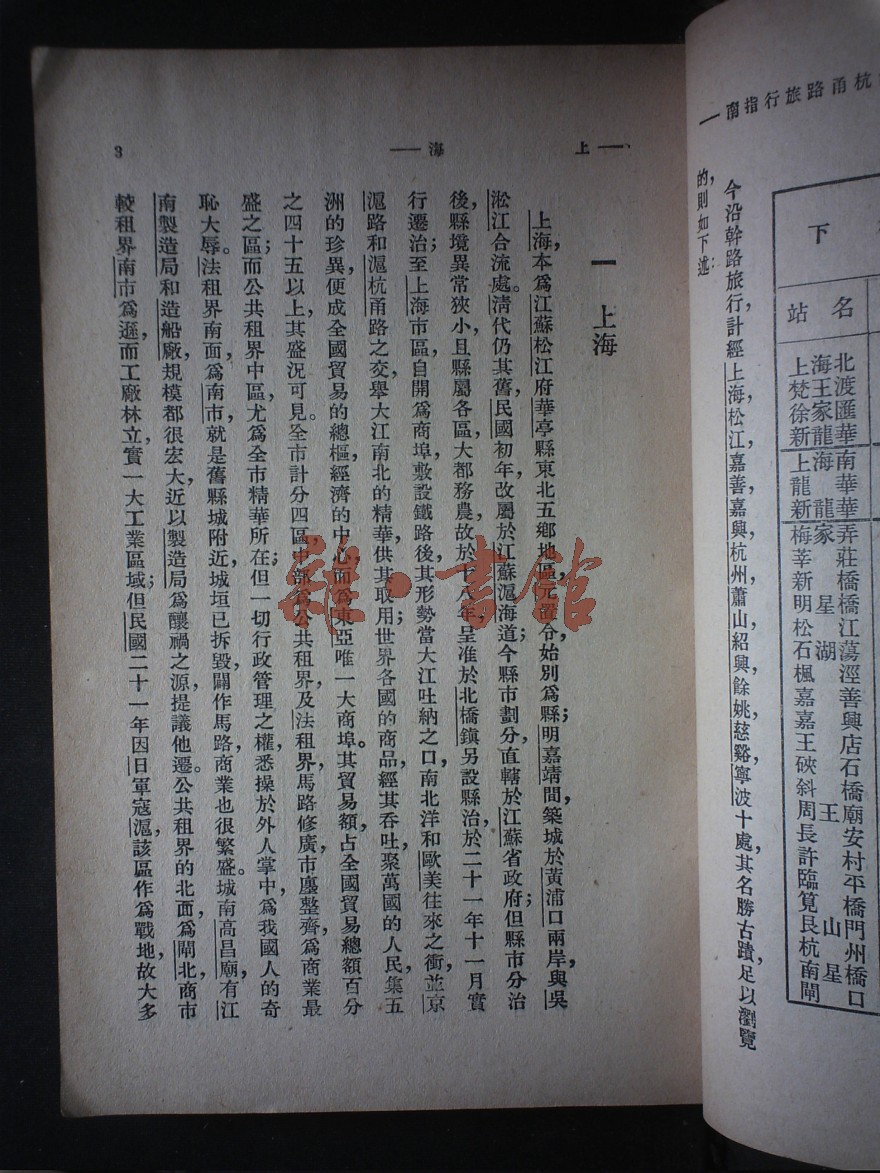 杭甬路旅行指南
下
站名
上海北
梵王渡
徐家匯
新龍華
上海南
龍華
新龍華
梅家弄
莘莊
新橋
明星橋
松江
石湖蕩
楓涇
嘉善
嘉興
王店
硤石
斜橋
周王廟
長安
許村
臨平
筧橋
艮山門
杭州
南星橋
閘口
今沿幹路旅行計經上海，松江，嘉善，嘉興，杭州，蕭山，紹興，餘姚，慈谿，寧波十處其名勝古蹟，足以瀏覽
的，則如下述：
上海
3
一 上海
上海，本爲江蘇松江府華亭縣東北五鄉地區，元置令始別爲縣；明嘉靖間，築城於黃浦口兩岸，與吳
淞江合流處。清代仍其舊，民國初年，改屬於江蘇滬海道；今縣市劃分，直轄於江蘇省政府；但縣市分治
後，縣境異常狹小，且縣屬各區，大都務農，故於十八年，呈准於北橋鎮，另設縣治，於二十一年十一月實
行遷治；至上海市區，自開爲商埠，敷設鐵路後，其形勢當大江吐納之口，南北洋和歐美往來之衝，並京
滬路和滬杭甬路之交，舉大江南北的精華，供其取用；世界各國的商品，經其吞吐，聚萬國的人民，集五
洲的珍異，便成全國貿易的總樞，經濟的中心，而爲東亞唯一大商埠。其貿易額占全國貿易總額百分
之四十五以上，其盛況可見。全市計分四區，中部爲公共租界，及法租界，馬路修廣，市廛整齊，爲商業最
盛之區；而公共租界中區，尤爲全市精華所在；但一切行政管理之權，悉操於外人掌中，爲我國人的奇
恥大辱。法租界南面，爲南市，就是舊縣城附近，城垣已拆毀，闢作馬路，商業也很繁盛。城南高昌廟，有江
南製造局和造船廠，規模都很宏大，近以製造局爲釀禍之源，提議他遷。公共租界的北面，爲閘北，商市
較租界南市爲遜，而工廠林立，實一大工業區域；但民國二十一年，因日軍寇滬，該區作爲戰地，故大多
雜·書館